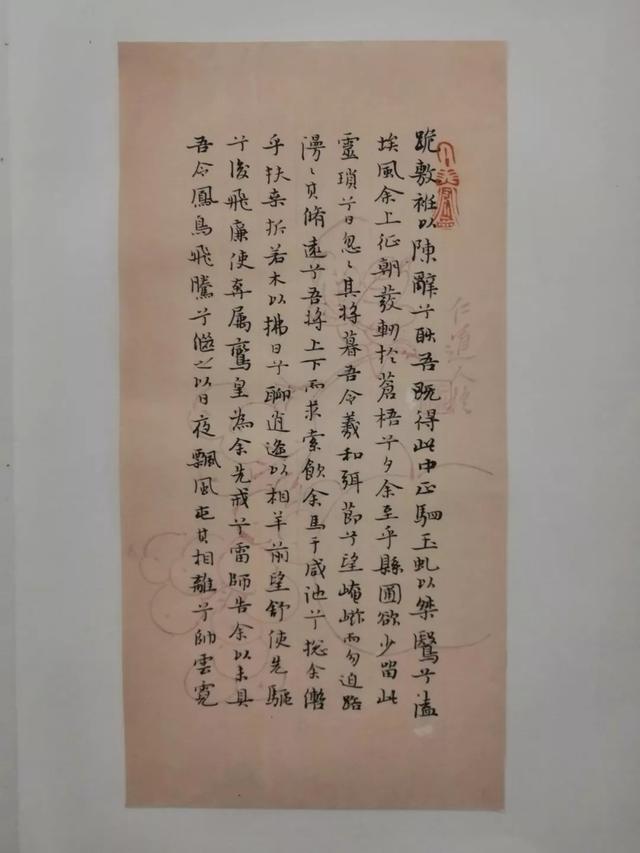 跪敷衽以陳辭兮耿吾既得此中正駟玉虬以桀鷖兮溘
埃風余上征朝發軔於蒼梧兮夕余至乎縣圃欲少留此
靈瑣兮日忽〻其將暮吾令羲和弭節兮望崦嵫而勿迫路
漫〻其脩遠兮吾將上下而求索飲余馬于咸池兮摠余轡
乎扶桒折若木以拂日兮聊逍遙以相羊前望舒使先驅
兮後飛廉使奔属鸞皇為余先戒兮雷師告余以未具
吾令鳳鳥飛騰兮繼之以日夜飄風屯其相離兮帥雲霓
仁道人